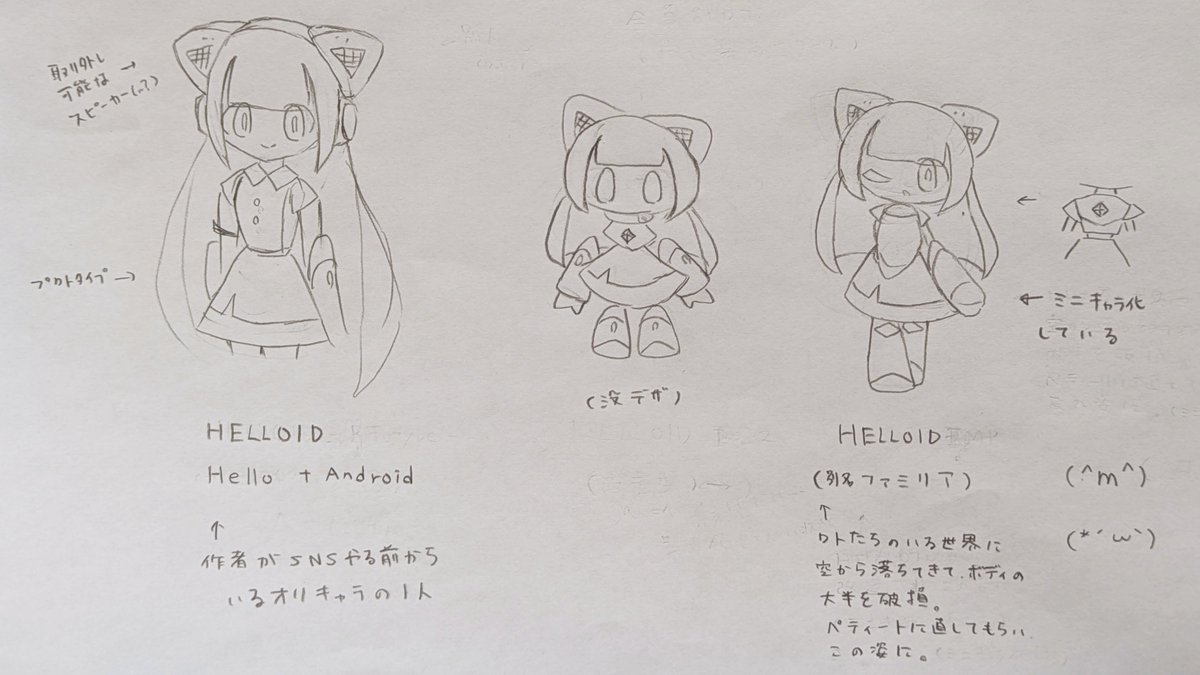 取り외し
可能な
スピーカー(い?)
プロトタイプ→
HELLOID
Hello + Android
↑
作者がSNSやる前から
いるオリキャラの1人
(没デザ)
←
← ミニキャラ化
している
HELLOID
(別名ファミリア)
↑
ロトたちのいる世界に
空から落ちてきて、ボディの
大半を破損。
ペティートに直してもらい、
この姿に。
(^m^)
(*´ω`)